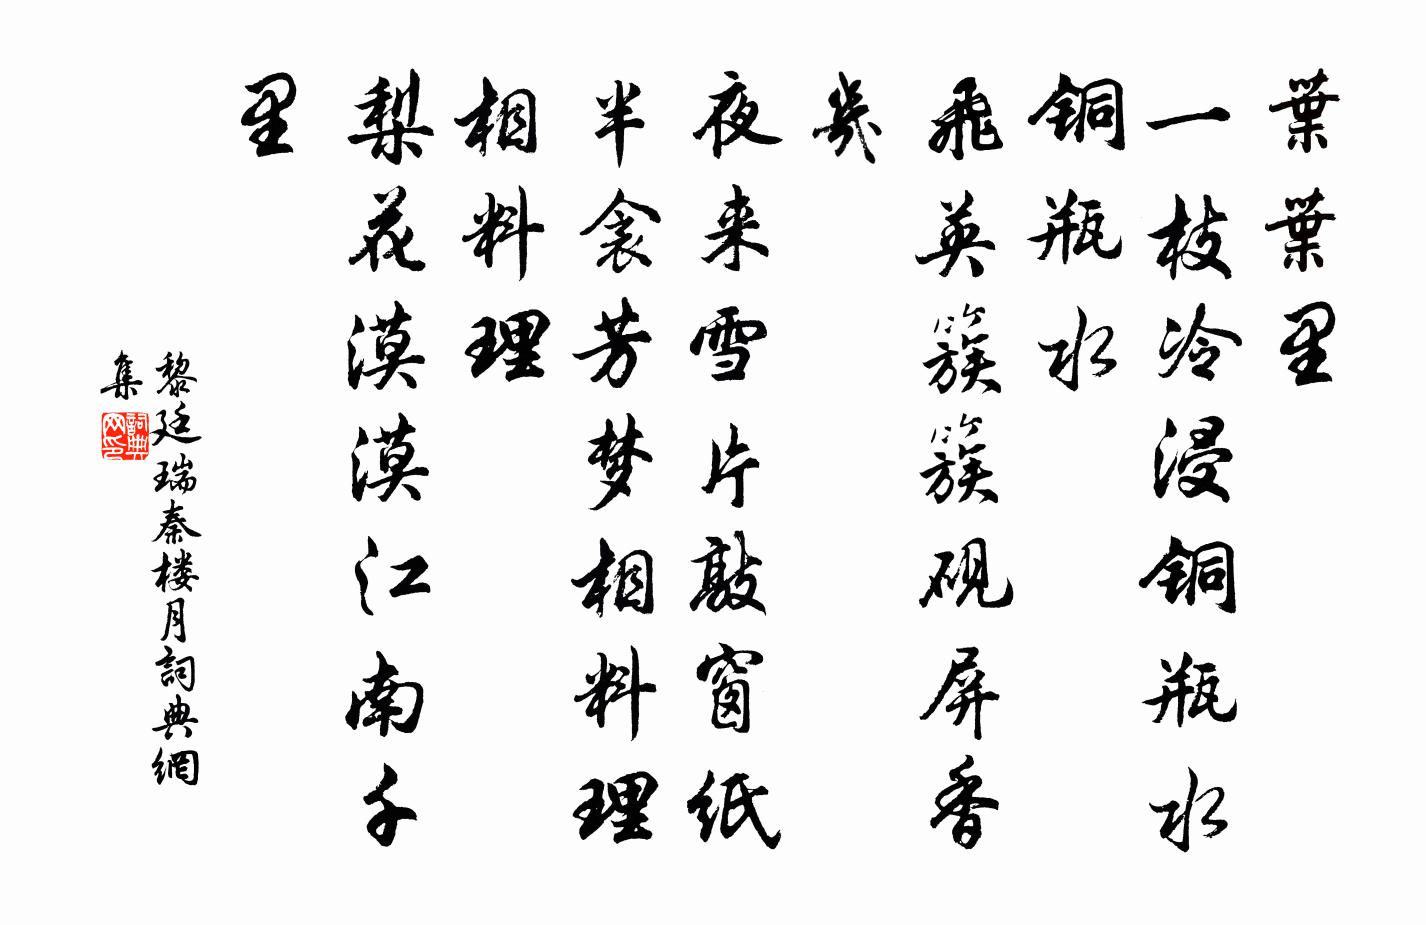 葉葉里
一枝冷浸铜瓶水
铜瓶水
飛英簇簇砚屏香
幾
夜来雪片敲窗纸
半衾芳梦相料理
相料理
梨花漠漠江南千
里
黎廷瑞秦楼月詞典網
集
詞典
网印